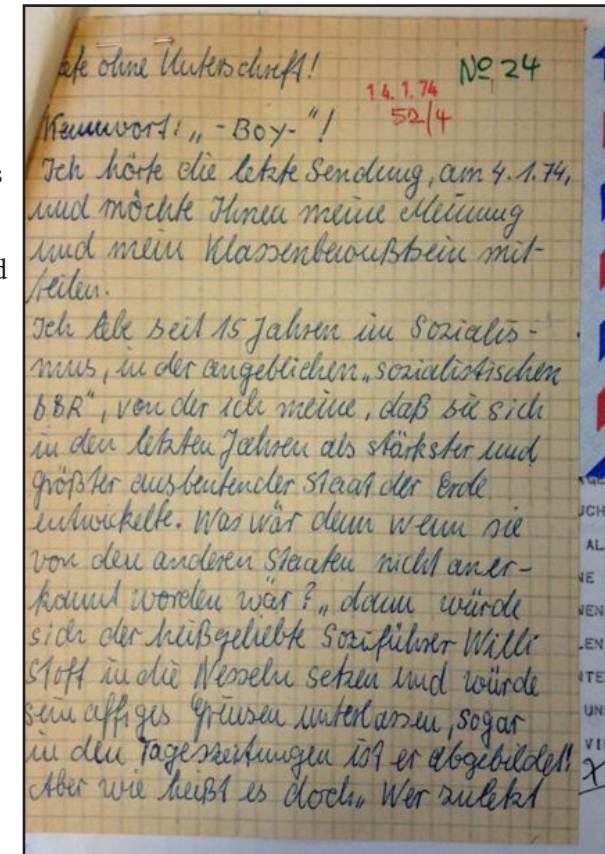 ohne Unterschrift!
No 24
14.1.74
52/4
Kennwort: „-BOY-"!
Ich hörte die letzte Sendung, am 4.1.74,
und möchte Ihnen meine Meinung
und mein Klassenbewußtsein mit-
teilen.
Ich lebe seit 15 Jahren im Sozialis-
mus, in der angeblichen „sozialistischen
DDR", von der ich meine, daß sie sich
in den letzten Jahren als stärkster und
größter ausbeutender Staat der Erde
entwickelte. Was wär denn wenn sie
von den anderen Staaten nicht aner-
kannt worden wär? „dann würde
sich der heißgeliebte Soziführer Willi
Stoff in die Nesseln setzen und würde
sein affiges Grinsen unterlassen, sogar
in den Tageszeitungen ist er abgebildet!"
Aber wie heißt es doch „Wer zuletzt